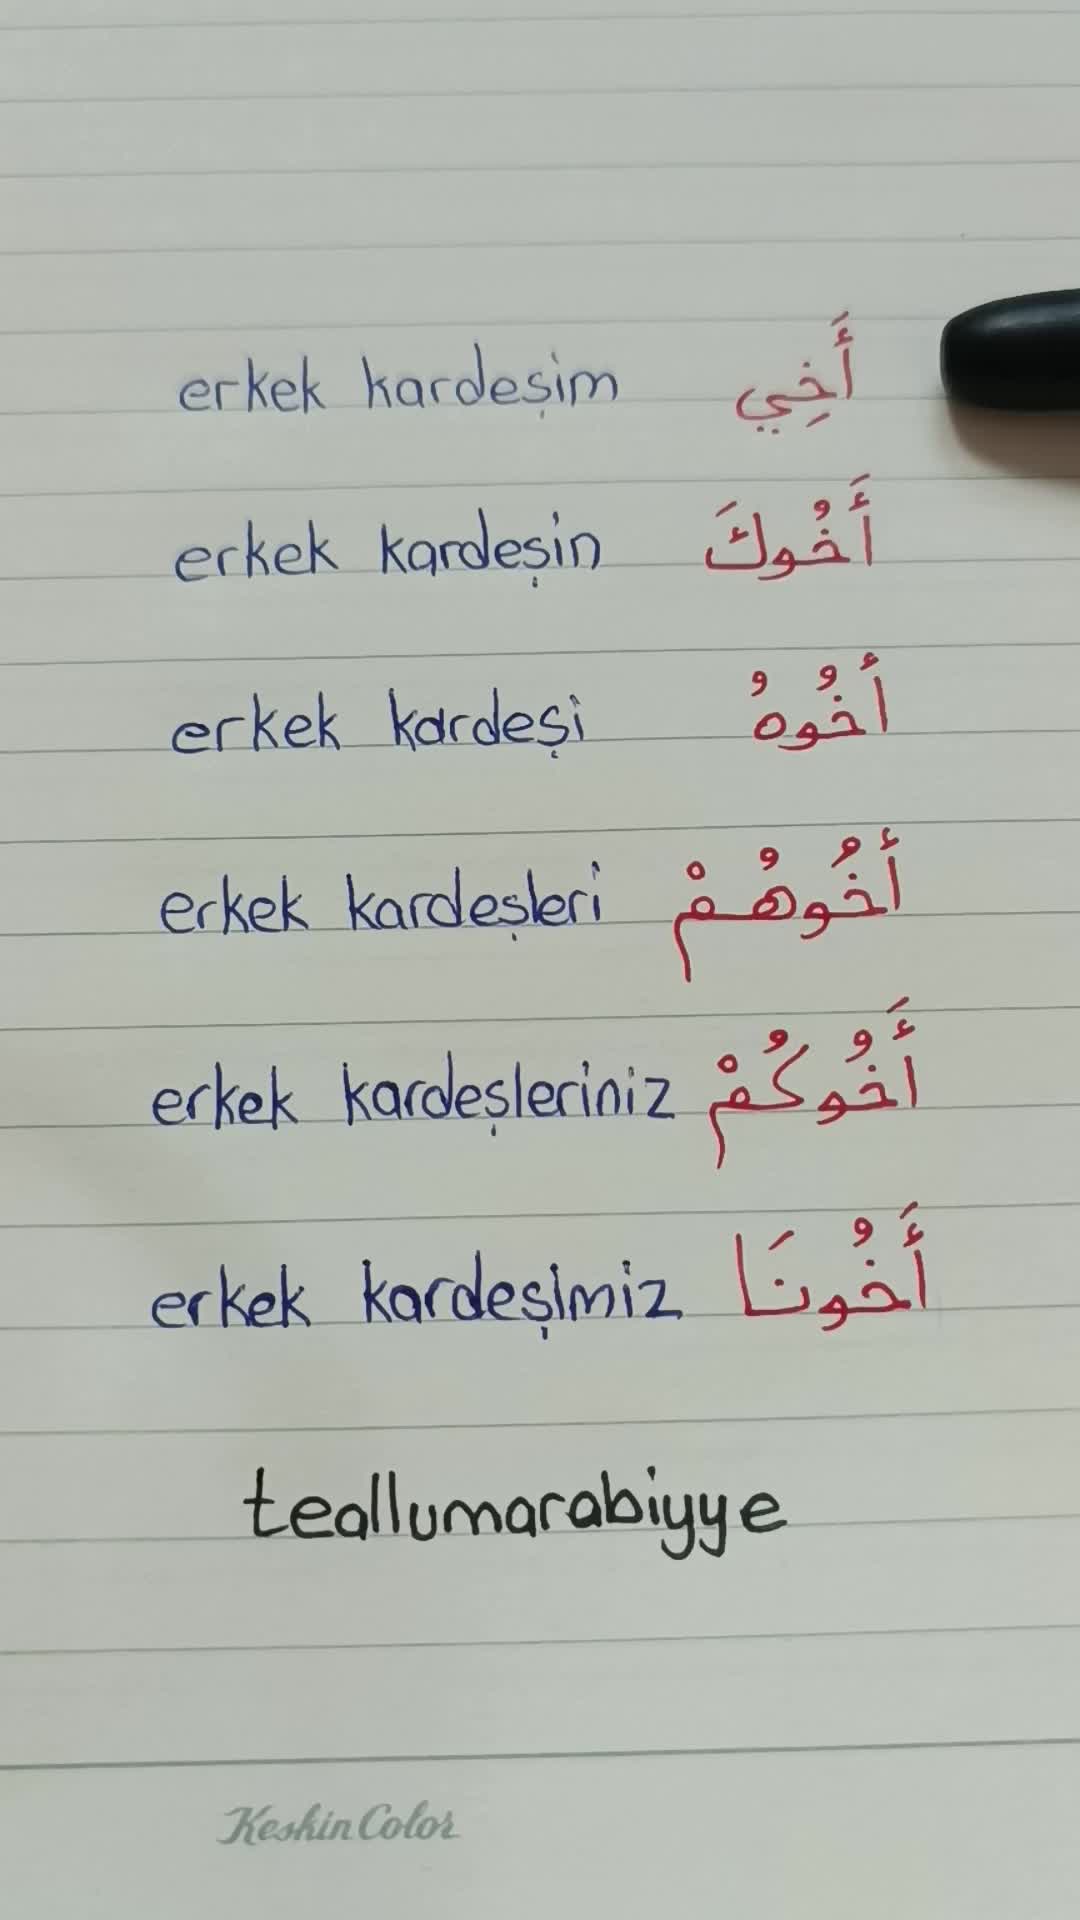 erkek kardeşim أَخِي
erkek kardeşin أَخُوكَ
erkek kardeşi أخُوهُ
erkek kardeşleri أخُوهُمْ
erkek kardeşleriniz أَخُوكُمْ
erkek kardeşimiz أَخُونَا
teallumarabiyye
KeskinColor